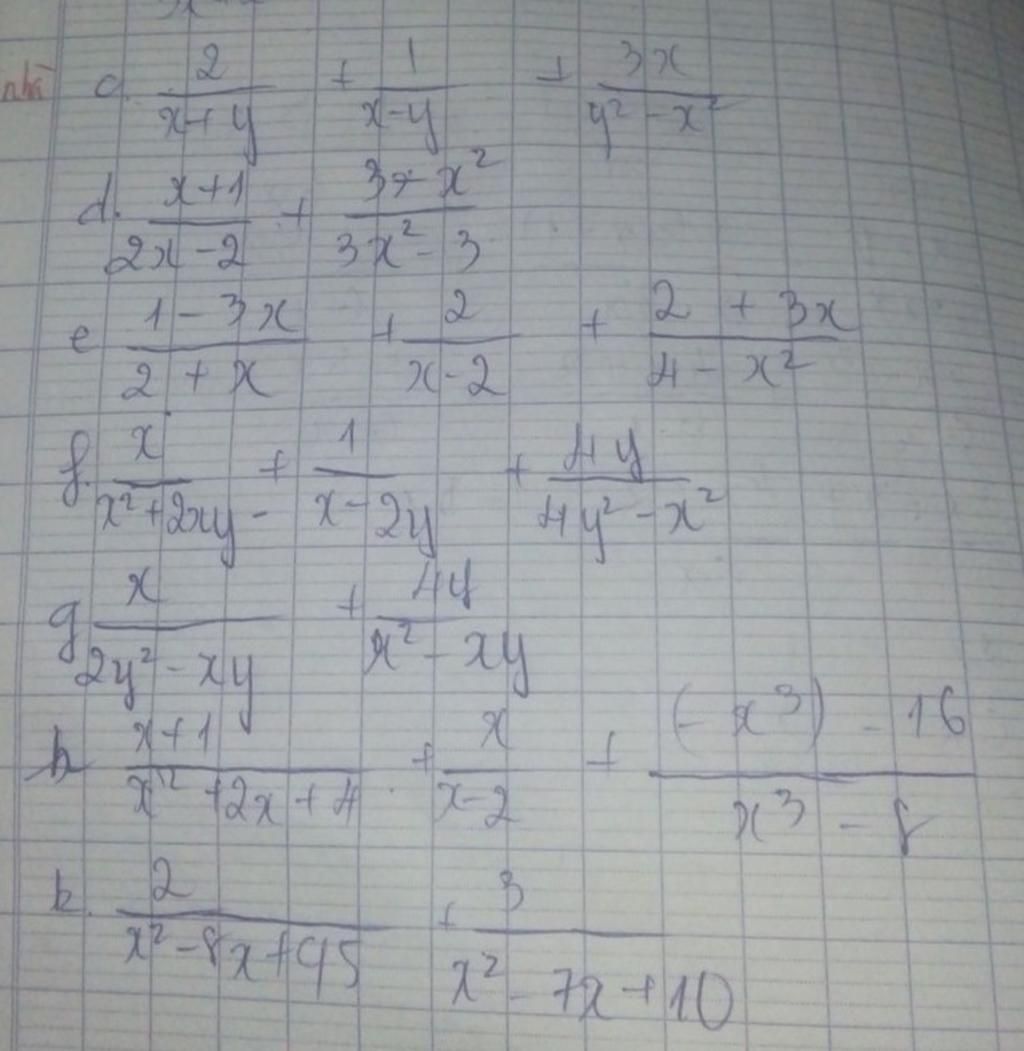 nhà c. 2/(x+y) + 1/(x-y) + 3x/(y² - x²)
d. (x+1)/(2x-2) + (3+x²)/(3x²-3)
e (1-3x)/(2+x) + 2/(x-2) + (2+3x)/(4-x²)
f. x/(x²+2xy) + 1/(x-2y) + 4y/(4y²-x²)
g x/(2y²-xy) + 4y/(x²-xy)
h (x+1)/(x²+2x+4) + x/(x-2) + ((-x³)-16)/(x³-8)
k. 2/(x²-8x+45) + 3/(x²-7x+10)